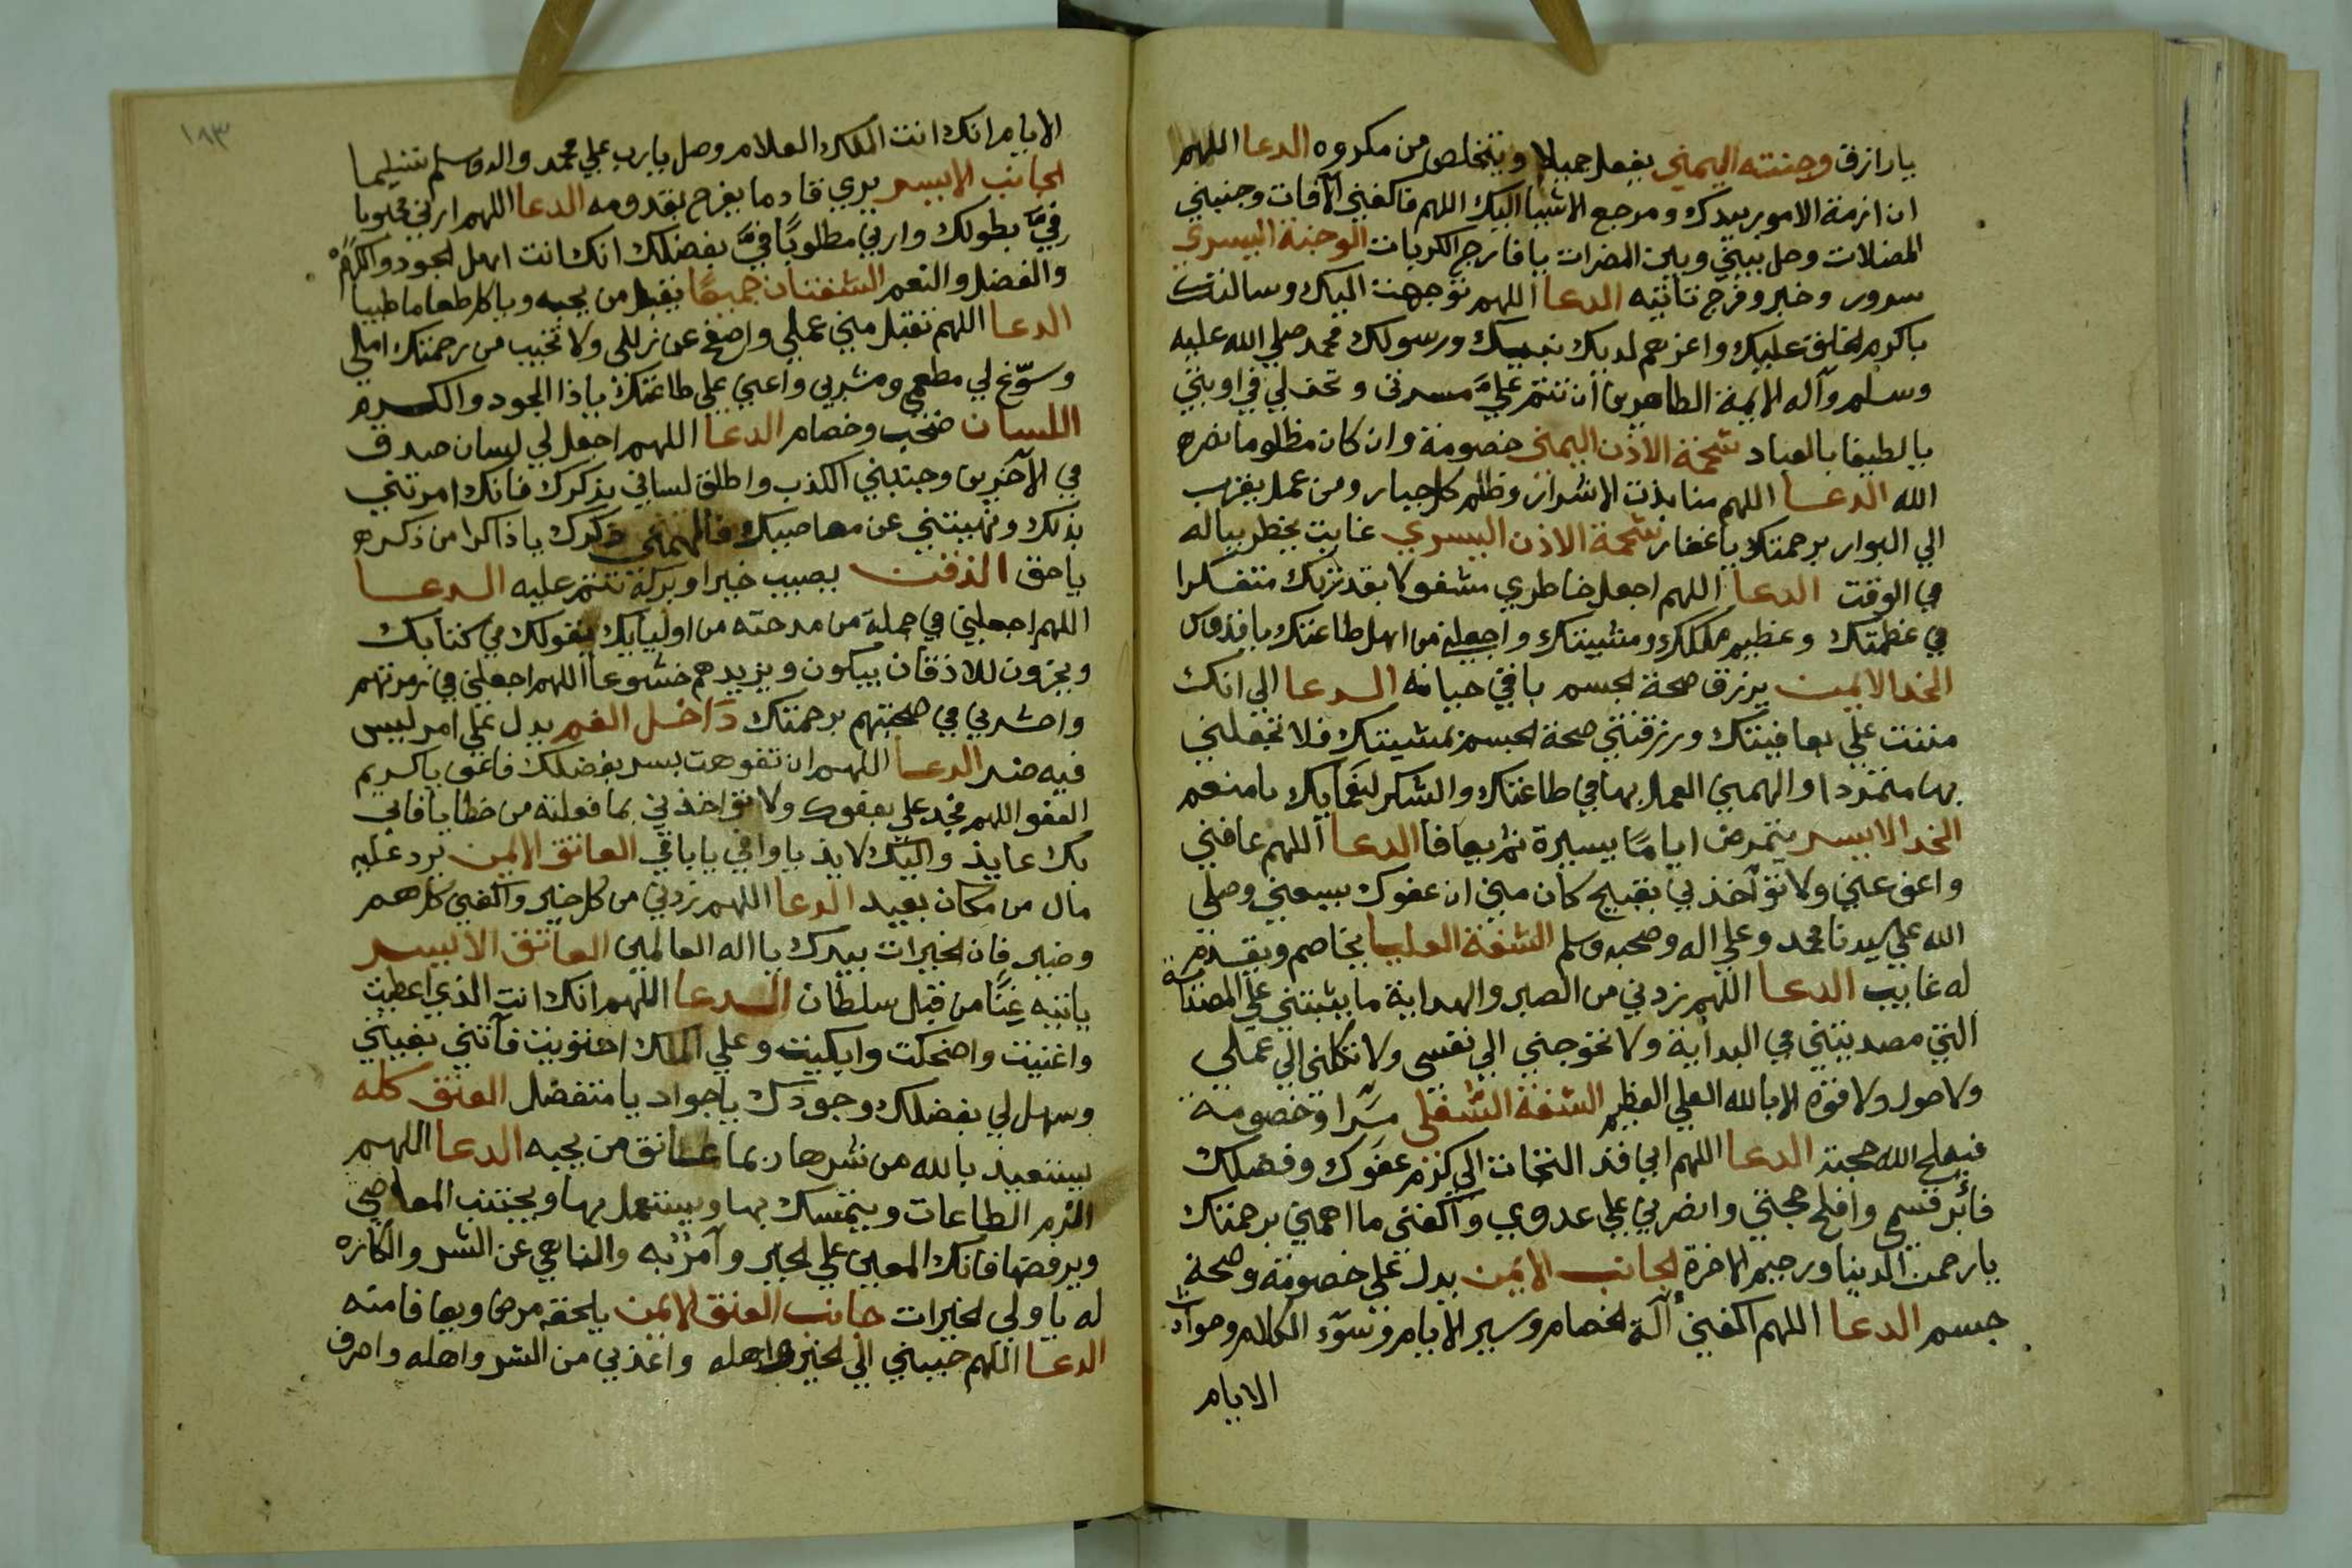 يا رازق وجنته اليمني يفعل جميلا ويتخلص من مكروه الدعا اللهم
ان ازمة الامور بيدك ومرجع الاشيا اليك اللهم فاكفني الآفات وجنبني
المضلات وحل بيني وبين المضرات يا فارج الكربات الوجنة اليسري
سرور وخير وفرج تاتيه الدعا اللهم توجهت اليك وسالتك
باكرم الخلق عليك واعزهم لديك نبيك ورسولك محمد صلي الله عليه
وسلم وآله الايمة الطاهرين ان تتم عليَّ مسرتي و لي في اوبتي
يا لطيفا بالعباد شحمة الاذن اليمني خصومة وان كان مظلوما نصره
الله الدعا اللهم منابذت الاشرار وظلم كل جبار ومن عمل يقرب
الي البوار برحمتك يا غفار شحمة الاذن اليسري غايب يخطر بباله
في الوقت الدعا اللهم اجعل خاطري مشغولا بقدرتك متفكرا
في عظمتك وعظيم ملكك ومشيتك واجعلني من اهل طاعتك يا قدوس
الخد الايمن يرزق صحة الجسم باقي حياته الدعا الهي انك
مننت علي بعافيتك ورزقتني صحة الجسم بمشيتك فلا تجعلني
بها متمردا والهمني العمل بها في طاعتك والشكر لنعمايك يا منعم
الخد الايسر يتمرض اياما يسيرة ثم يعافا الدعا اللهم عافني
واعف عني ولا تؤآخذني بقبيح كان مني ان عفوك يسعني وصلي
الله علي سيدنا محمد وعلي اله وصحبه وسلم الشفة العليا يخاصم ويقدم
له غايب الدعا اللهم زدني من الصبر والهداية ما يثبتني علي المصنداة
التي مصديتني في البداية ولا تحوجني الي نفسي ولا تكلني الي عملي
ولا حول ولا قوة الا بالله العلي العظيم الشفة السُفلي شرا وخصومة
فيفلح الله حجته الدعا اللهم اني قد التجات الي كرم عفوك وفضلك
فأبر قسمي وافلح حجتي وانصرني علي عدوي واكفني ما اهمني برحمتك
يا رحمن الدنيا ورحيم الاخرة الجانب الايمن يدل علي خصومة وصحة
جسم الدعا اللهم اكفني آلة الخصام وسير الايام وسوٓء الكلام وحوادث
الايام
١٨٣
الايام انك انت الملك العلام وصل يا رب علي محمد واله وسلم تسليما
الجانب الايسر يري قادما يفرح بقدومه الدعا اللهم ارني محبوبا
فيَّ بطولك وارني مطلوبًا فيَّ بفضلك انك انت اهل الجود والكرم
والفضل والنعم الشفتان جميعًا يقبل من يحبه وياكل طعاما طيبا
الدعا اللهم تقبل مني عملي واصفح عن زللي ولا تخيب من رحمتك املي
وسوّغ لي مطعمي ومشربي واعني علي طاعتك ياذا الجود والكرم
اللسان صخب وخصام الدعا اللهم اجعل لي لسان صدق
في الآخرين وجنبني الكذب واطلق لساني بذكرك فانك امرتني
بذلك ونهيتني عن معاصيك فالهمني ذكرك يا ذاكرا من ذكره
ياحق الذقن يصيب خيرا وبركة تتم عليه الدعا
اللهم اجعلني في جملة من مدحته من اوليايك بقولك في كتابك
ويخرون للاذقان يبكون ويزيدهم خشوعا اللهم اجعلني في زمرتهم
واحشرني في صحبتهم برحمتك دَاخل الفم يدل علي امر ليس
فيه ضر الدعا اللهم ان تفوهت بسر بفضلك فاعف ياكريم
العفو اللهم فجد علي بعفوك ولا تؤاخذني بما فعلته من خطايا فاني
بك عايذ واليك لايذ يا وافي يا باقي العاتق الايمن يرد عليه
مال من مكان بعيد الدعا اللهم زدني من كل خير واكفني كل هم
وضير فان الخيرات بيدك يا اله العالمين العاتق الايسر
ياتيه غِنًا من قبل سلطان الدعا اللهم انك انت الذي اعطيت
واغنيت واضحكت وابكيت وعلي الملك احتويت فآتني بغيتي
وسهل لي بفضلك وجودك يا جواد يا متفضل العنق كله
يستعيذ بالله من شرها ربما عانق من يحبه الدعا اللهم
الزم الطاعات ويتمسك بها ويستعمل بها ويجتنب المعاصي
ويرفضها فانك المعين علي الخير وآمرٌ به والناهي عن الشر والكاره
له يا ولي الخيرات جانب العنق الايمن يلحقه مرض ويعافا منه
الدعا اللهم حببني الي الخير واهله واعذني من الشر واهله واصرف